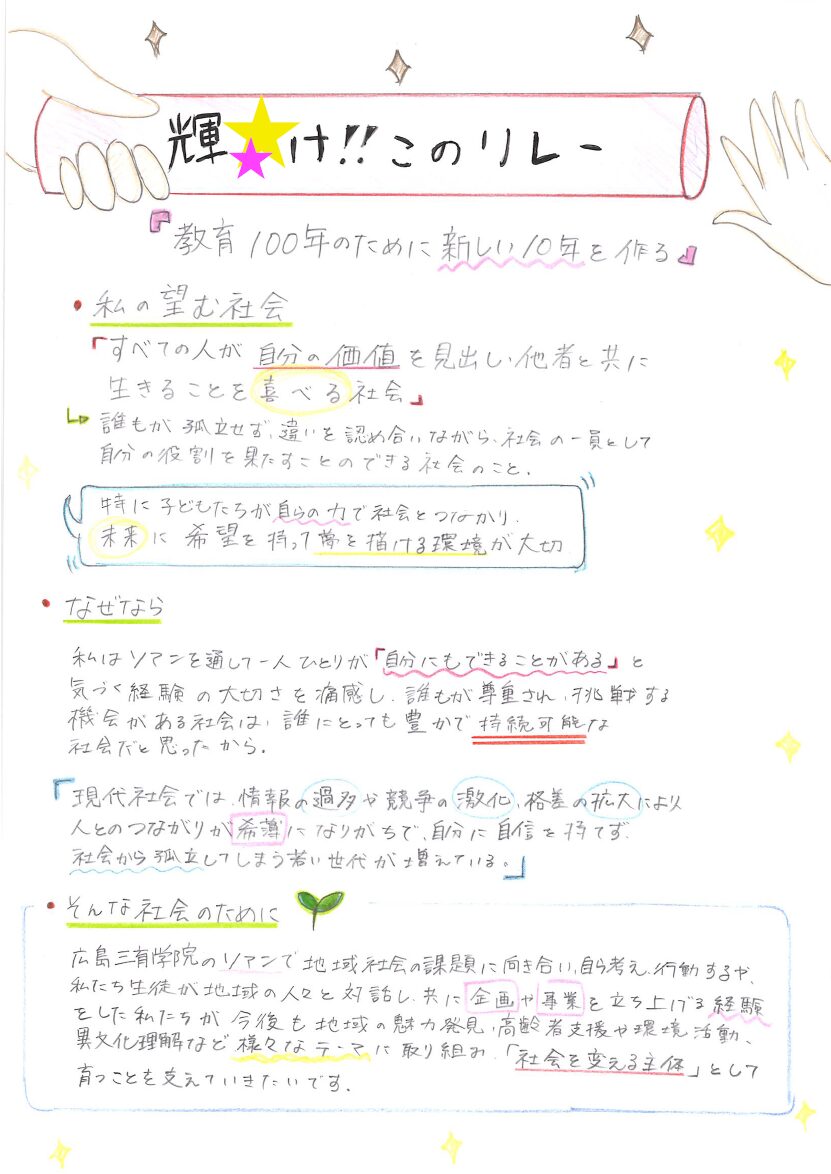 輝け!!このリレー
『教育100年のために新しい10年を作る』
・私の望む社会
「すべての人が自分の価値を見出し、他者と共に
生きることを喜べる社会」
誰もが孤立せず、違いを認め合いながら、社会の一員として
自分の役割を果たすことのできる社会のこと.
特に子どもたちが自らの力で社会とつながり、
未来に希望を持って夢を描ける環境が大切
・なぜなら
私はソアンを通して一人ひとりが「自分にもできることがある」と
気づく経験の大切さを痛感し、誰もが尊重され、挑戦する
機会がある社会は、誰にとっても豊かで持続可能な
社会だと思ったから.
「現代社会では、情報の過多や競争の激化、格差の拡大により
人とのつながりが希薄になりがちで、自分に自信を持てず.
社会から孤立してしまう若い世代が増えている。」
・そんな社会のために
広島三育学院のソアンで地域社会の課題に向き合い、自ら考え、行動するや、
私たち生徒が地域の人々と対話し、共に企画や事業を立ち上げる経験
をした私たちが今後も地域の魅力発見、高齢者支援や環境活動、
異文化理解など様々なテーマに取り組み、「社会を変える主体」として
育つことを支えていきたいです.